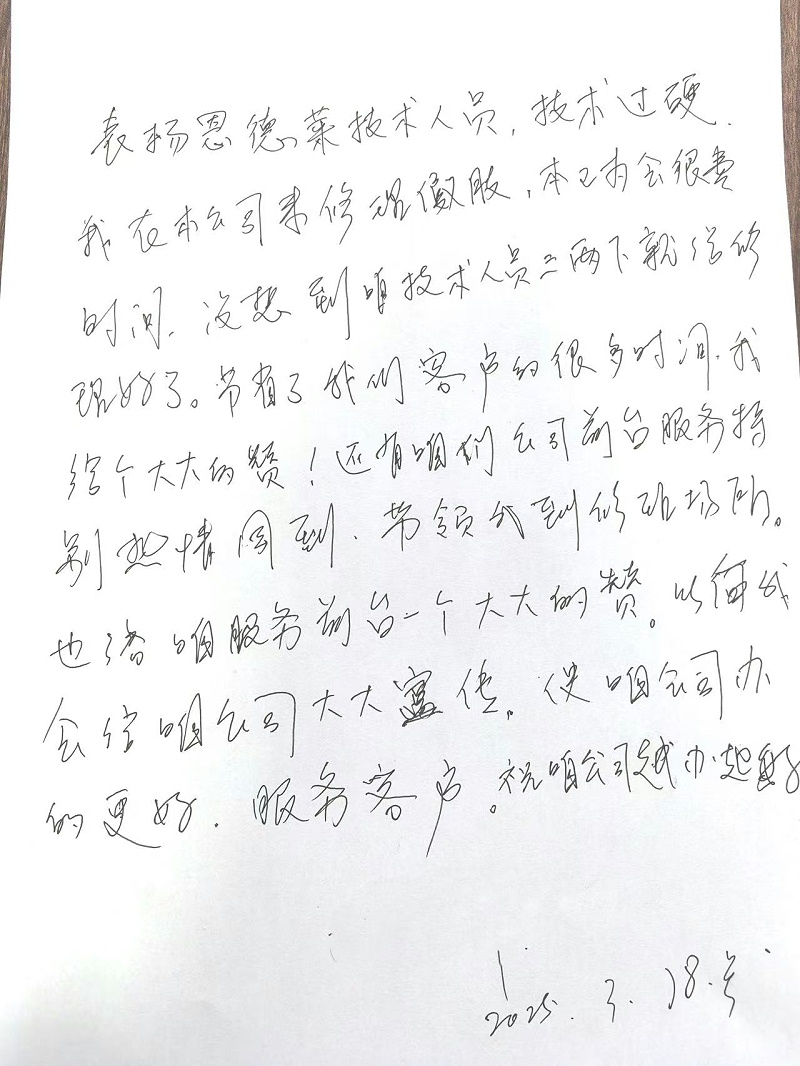 表扬恩德莱技术人员,技术过硬.
我在本公司来修理假肢,本以为会很费
时间、没想到咱技术人员三两下就给修
理好了。节省了我们客户的很多时间、我
给个大大的赞!还有咱们公司前台服务特
别热情周到、带领我到修理场所。
也给咱服务前台一个大大的赞。以后我
会给咱公司大大宣传。使咱公司办
的更好.服务客户。祝咱公司越办越好
2025.3.18.号